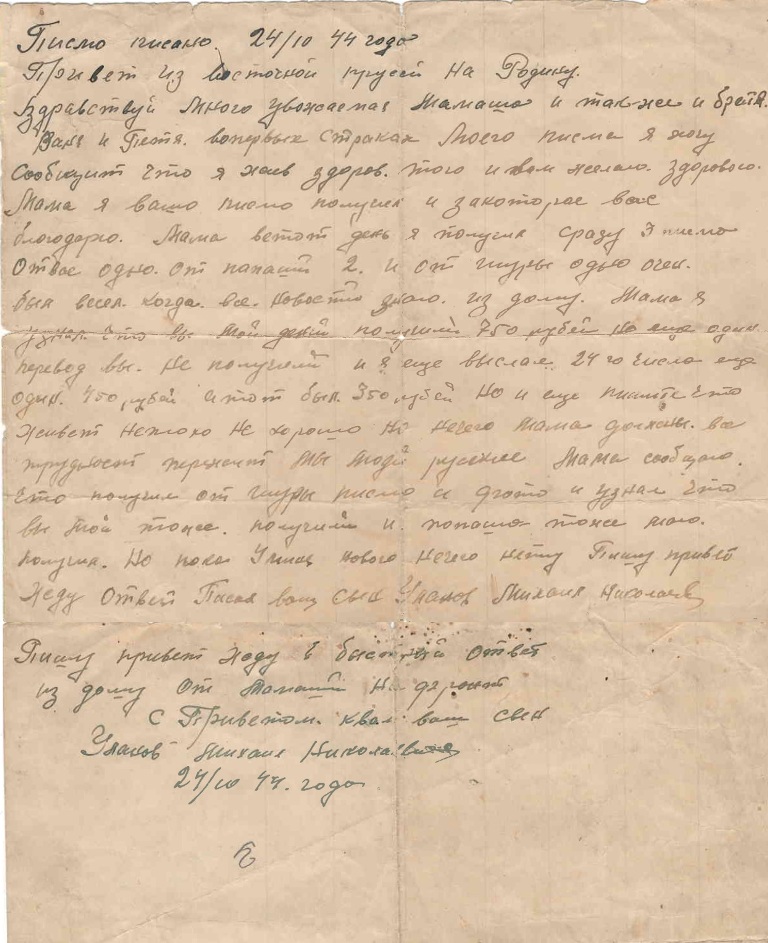 Писмо писано 24/10 44 года
Привет из восточной прусей на Родину.
Здравствуй много уважаемая Мамаша и также и братя.
Ваня и Петя. вопервых страках Моего писма я хочу
сообщит что я жив здоров. того и вам желаю. здорового.
Мама я вашо писмо получил и закоторае вас
благодарю. Мама ветот день я получил сразу 3 писма
отвас одно. от папаши 2. и от шуры одно очен.
был весел. когда. все. новости знаю. из дому. Мама я
узнал что вы мои денги получили 750 рублей но еще один.
перевод вы. не получили и я еще выслал 24го числа еще
один. 450 рублей а тот был. 350 рублей Но и еще пишите что
живет неплохо не хорошо Но нечего Мама должны. все
трудност перенест мы люди руские Мама сообщаю.
что получил от шуры писмо и фото и узнал что
вы мой тоже. получили и. папаша тоже мою.
получил. Но пока У миня нового нечего нету Пишу привет
Жду Ответ Писал ваш сын Уланов Михаил Николаев
Пишу привет жду быстрый ответ
из дому от Мамаши На фронт
с Приветом. квам. ваш сын
Уланов Михаил Николаевич
24/10 44. года